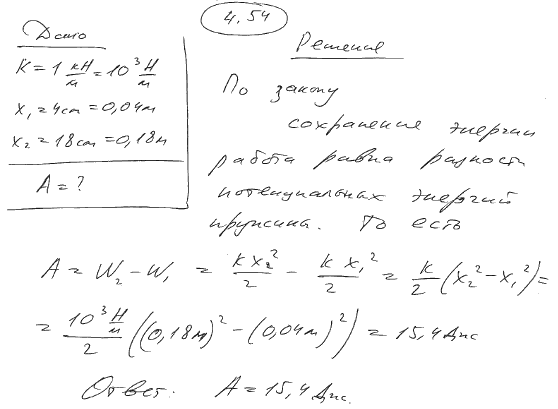 4.54
Дано
K = 1 кН/м = 10³ Н/м
x₁ = 4 cm = 0,04 м
x₂ = 18 cm = 0,18 м
A = ?
Решение
По закону
сохранение энергии
работа равна разности
потенциальных энергий
пружина. То есть
A = W₂ − W₁ = kx₂²/2 − kx₁²/2 = k/2 (x₂² − x₁²) =
= 10³ Н/м / 2 ((0,18 м)² − (0,04 м)²) = 15,4 Дж
Ответ. A = 15,4 Дж.